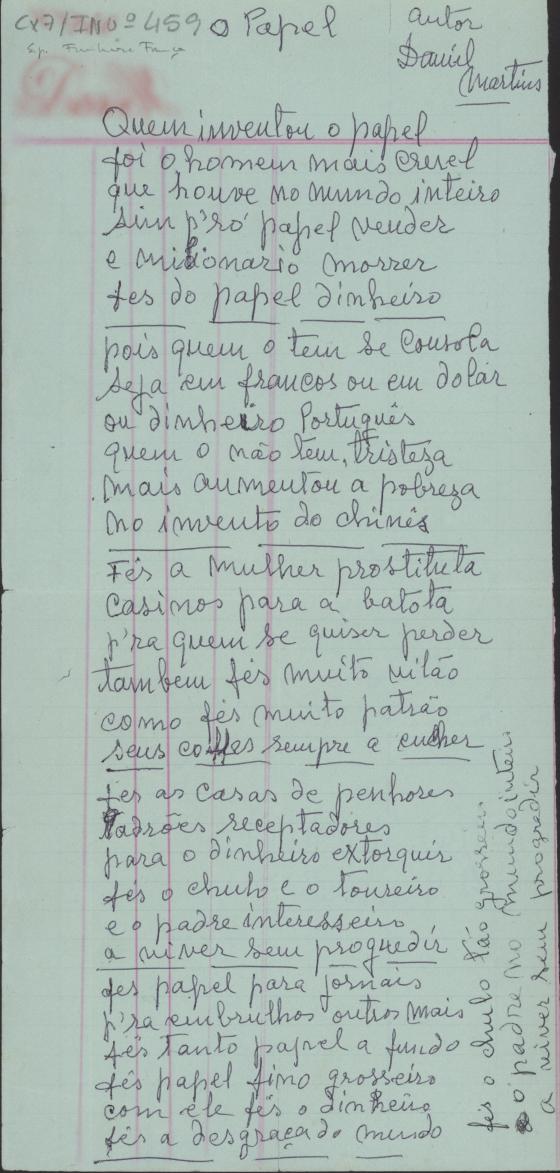 CX7/INVº 459
o Papel
autor
Daniel
Martins
Quem inventou o papel
foi o homem mais cruel
que houve no mundo inteiro
sim p'ró papel vender
e milionario morrer
fes do papel dinheiro
pois quem o tem se consola
seja em francos ou em dolar
ou dinheiro Português
quem o não tem, tristeza
mais aumentou a pobreza
no invento do chinês
Fés a mulher prostituta
casinos para a batota
p'ra quem se quiser perder
tambem fés muito vilão
como fés muito patrão
seus coffes sempre a encher
fes as casas de penhores
ladrões receptadores
para o dinheiro extorquir
fés o chulo e o toureiro
e o padre interesseiro
a viver sem proguedir
fes papel para jornais
p'ra embrulhos outros mais
fés tanto papel a fundo
fés papel fino grosseiro
com ele fés o dinheiro
fés a desgraça do mundo
fés o chulo tão grosseiro
o padre no mundo inteiro
a viver sem progredir